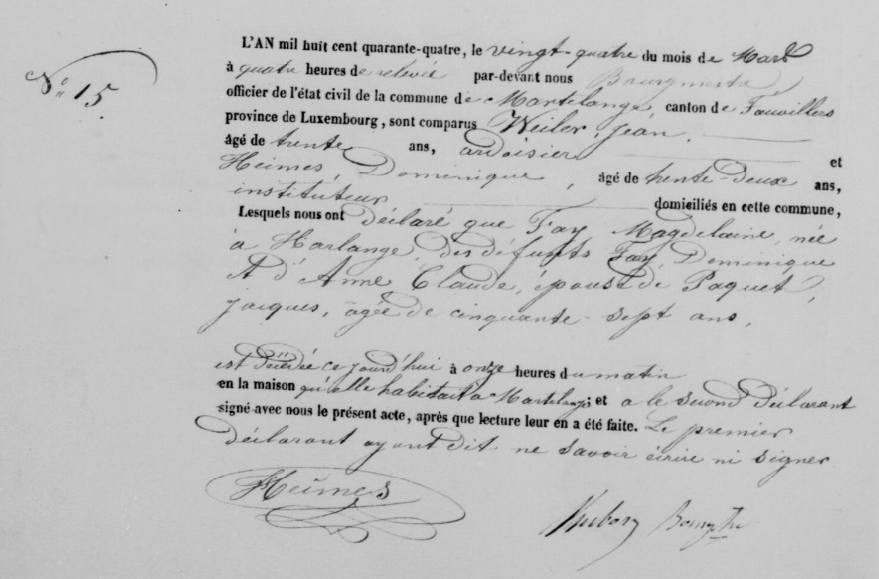 N° 15.
L'AN mil huit cent quarante-quatre, le vingt-quatre du mois de Mars
à quatre heures de relevée par-devant nous Bourgmestre
officier de l'état civil de la commune de Martelange, canton de Fauvillers
province de Luxembourg, sont comparus Weiler, Jean.
âgé de trente ans, ardoisier et
Heimes, Dominique, âgé de trente-deux ans,
instituteur domiciliés en cette commune,
Lesquels nous ont déclaré que Fay Magdelaine, née
à Harlange, des défunts Fay, Dominique
et d'Anne Claude, épouse de Paquet,
jacques, âgée de cinquante-sept ans,
est décédée ce jourd'hui à onze heures du matin
en la maison qu'elle habitait à Martelange; et a le second déclarant
signé avec nous le présent acte, après que lecture leur en a été faite. Le premier
déclarant ayant dit ne savoir écrire ni signer.
Heimes